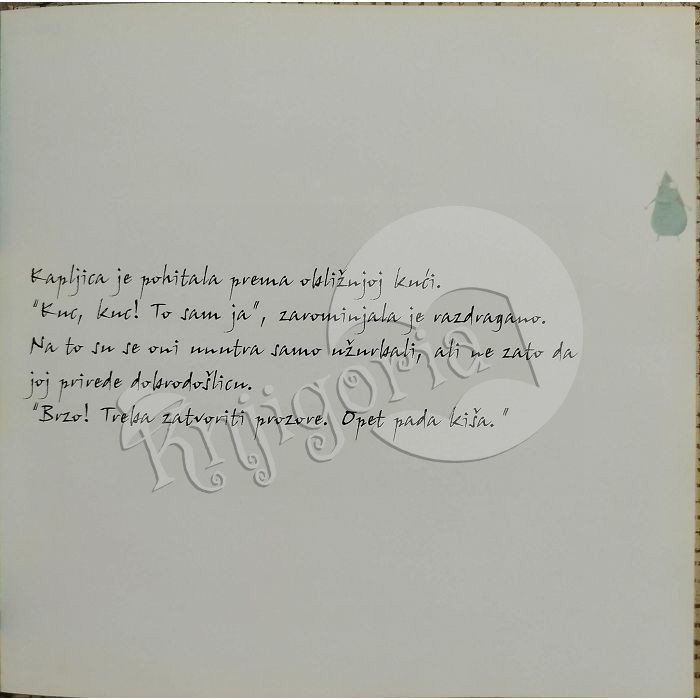 Kapljica je pohitala prema obližnjoj kući.
"Kuc, kuc! To sam ja", zarominjala je razdragano.
Na to su se oni unutra samo užurbali, ali ne zato da
joj prirede dobrodošlicu.
"Brzo! Treba zatvoriti prozore. Opet pada kiša."
Knjigoria